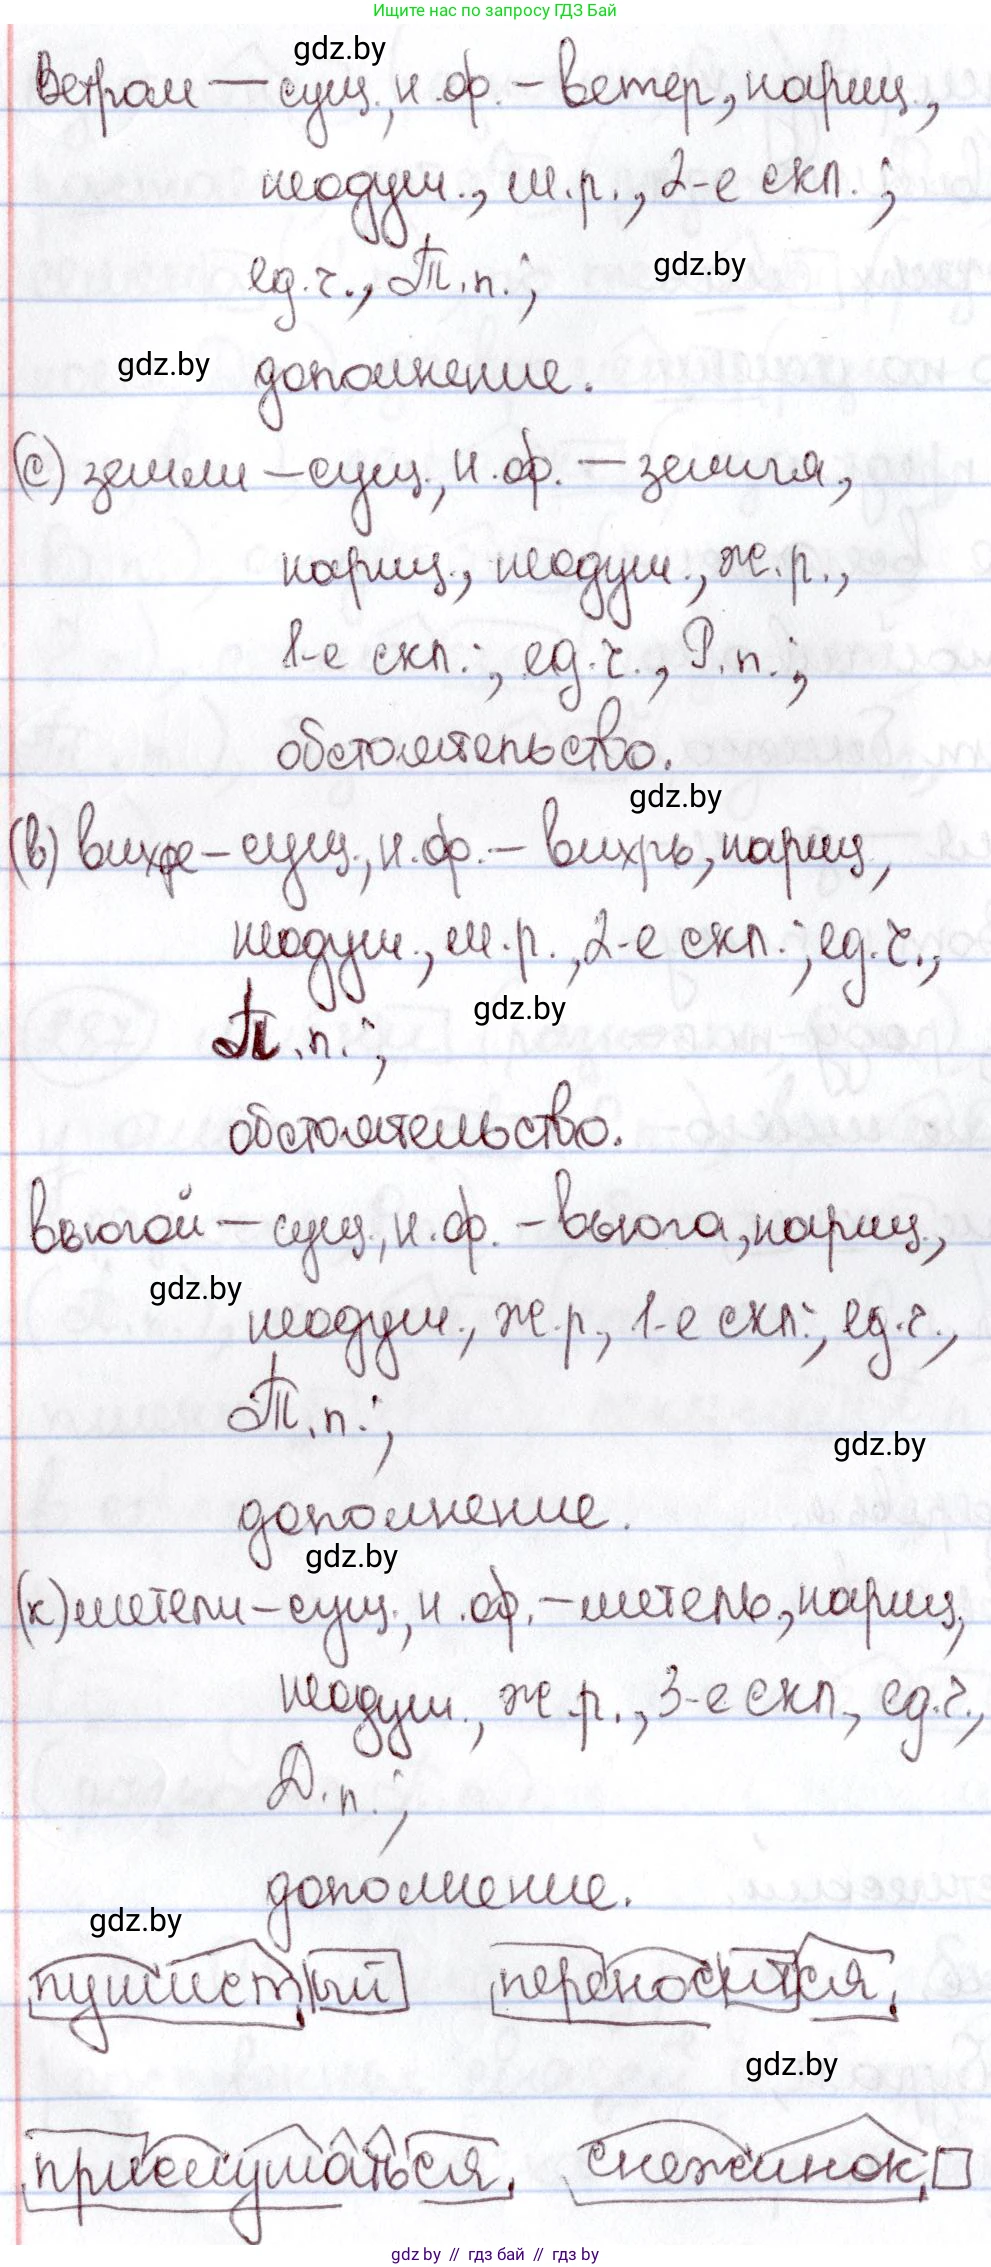 Ищите нас по запросу ГДЗ Бай
gdz.by
Ветром — сущ., н.ф. - ветер, нариц.,
неодуш., м.р., 2-е скл.;
ед.ч., Т.п.;
gdz.by
gdz.by
дополнение.
(с) земли - сущ., н.ф. - земля,
нариц., неодуш., ж.р.,
1-е скл.; ед.ч., Р.п.;
обстоятельство.
gdz.by
(в) вихре - сущ., н.ф. - вихрь, нариц,
неодуш., м.р., 2-е скл.; ед.ч.,
gdz.by
П.п.;
обстоятельство.
вьюгой - сущ., н.ф. - вьюга, нариц.,
gdz.by
неодуш., ж.р., 1-е скл.; ед.ч.,
Т.п.;
gdz.by
дополнение.
gdz.by
(к) метели - сущ., н.ф. - метель, нариц,
неодуш., ж.р., 3-е скл., ед.ч.,
Д.п.;
дополнение.
gdz.by
пушистый переносится
gdz.by
прислушаться снежинок
gdz.by // гдз бай // gdz by